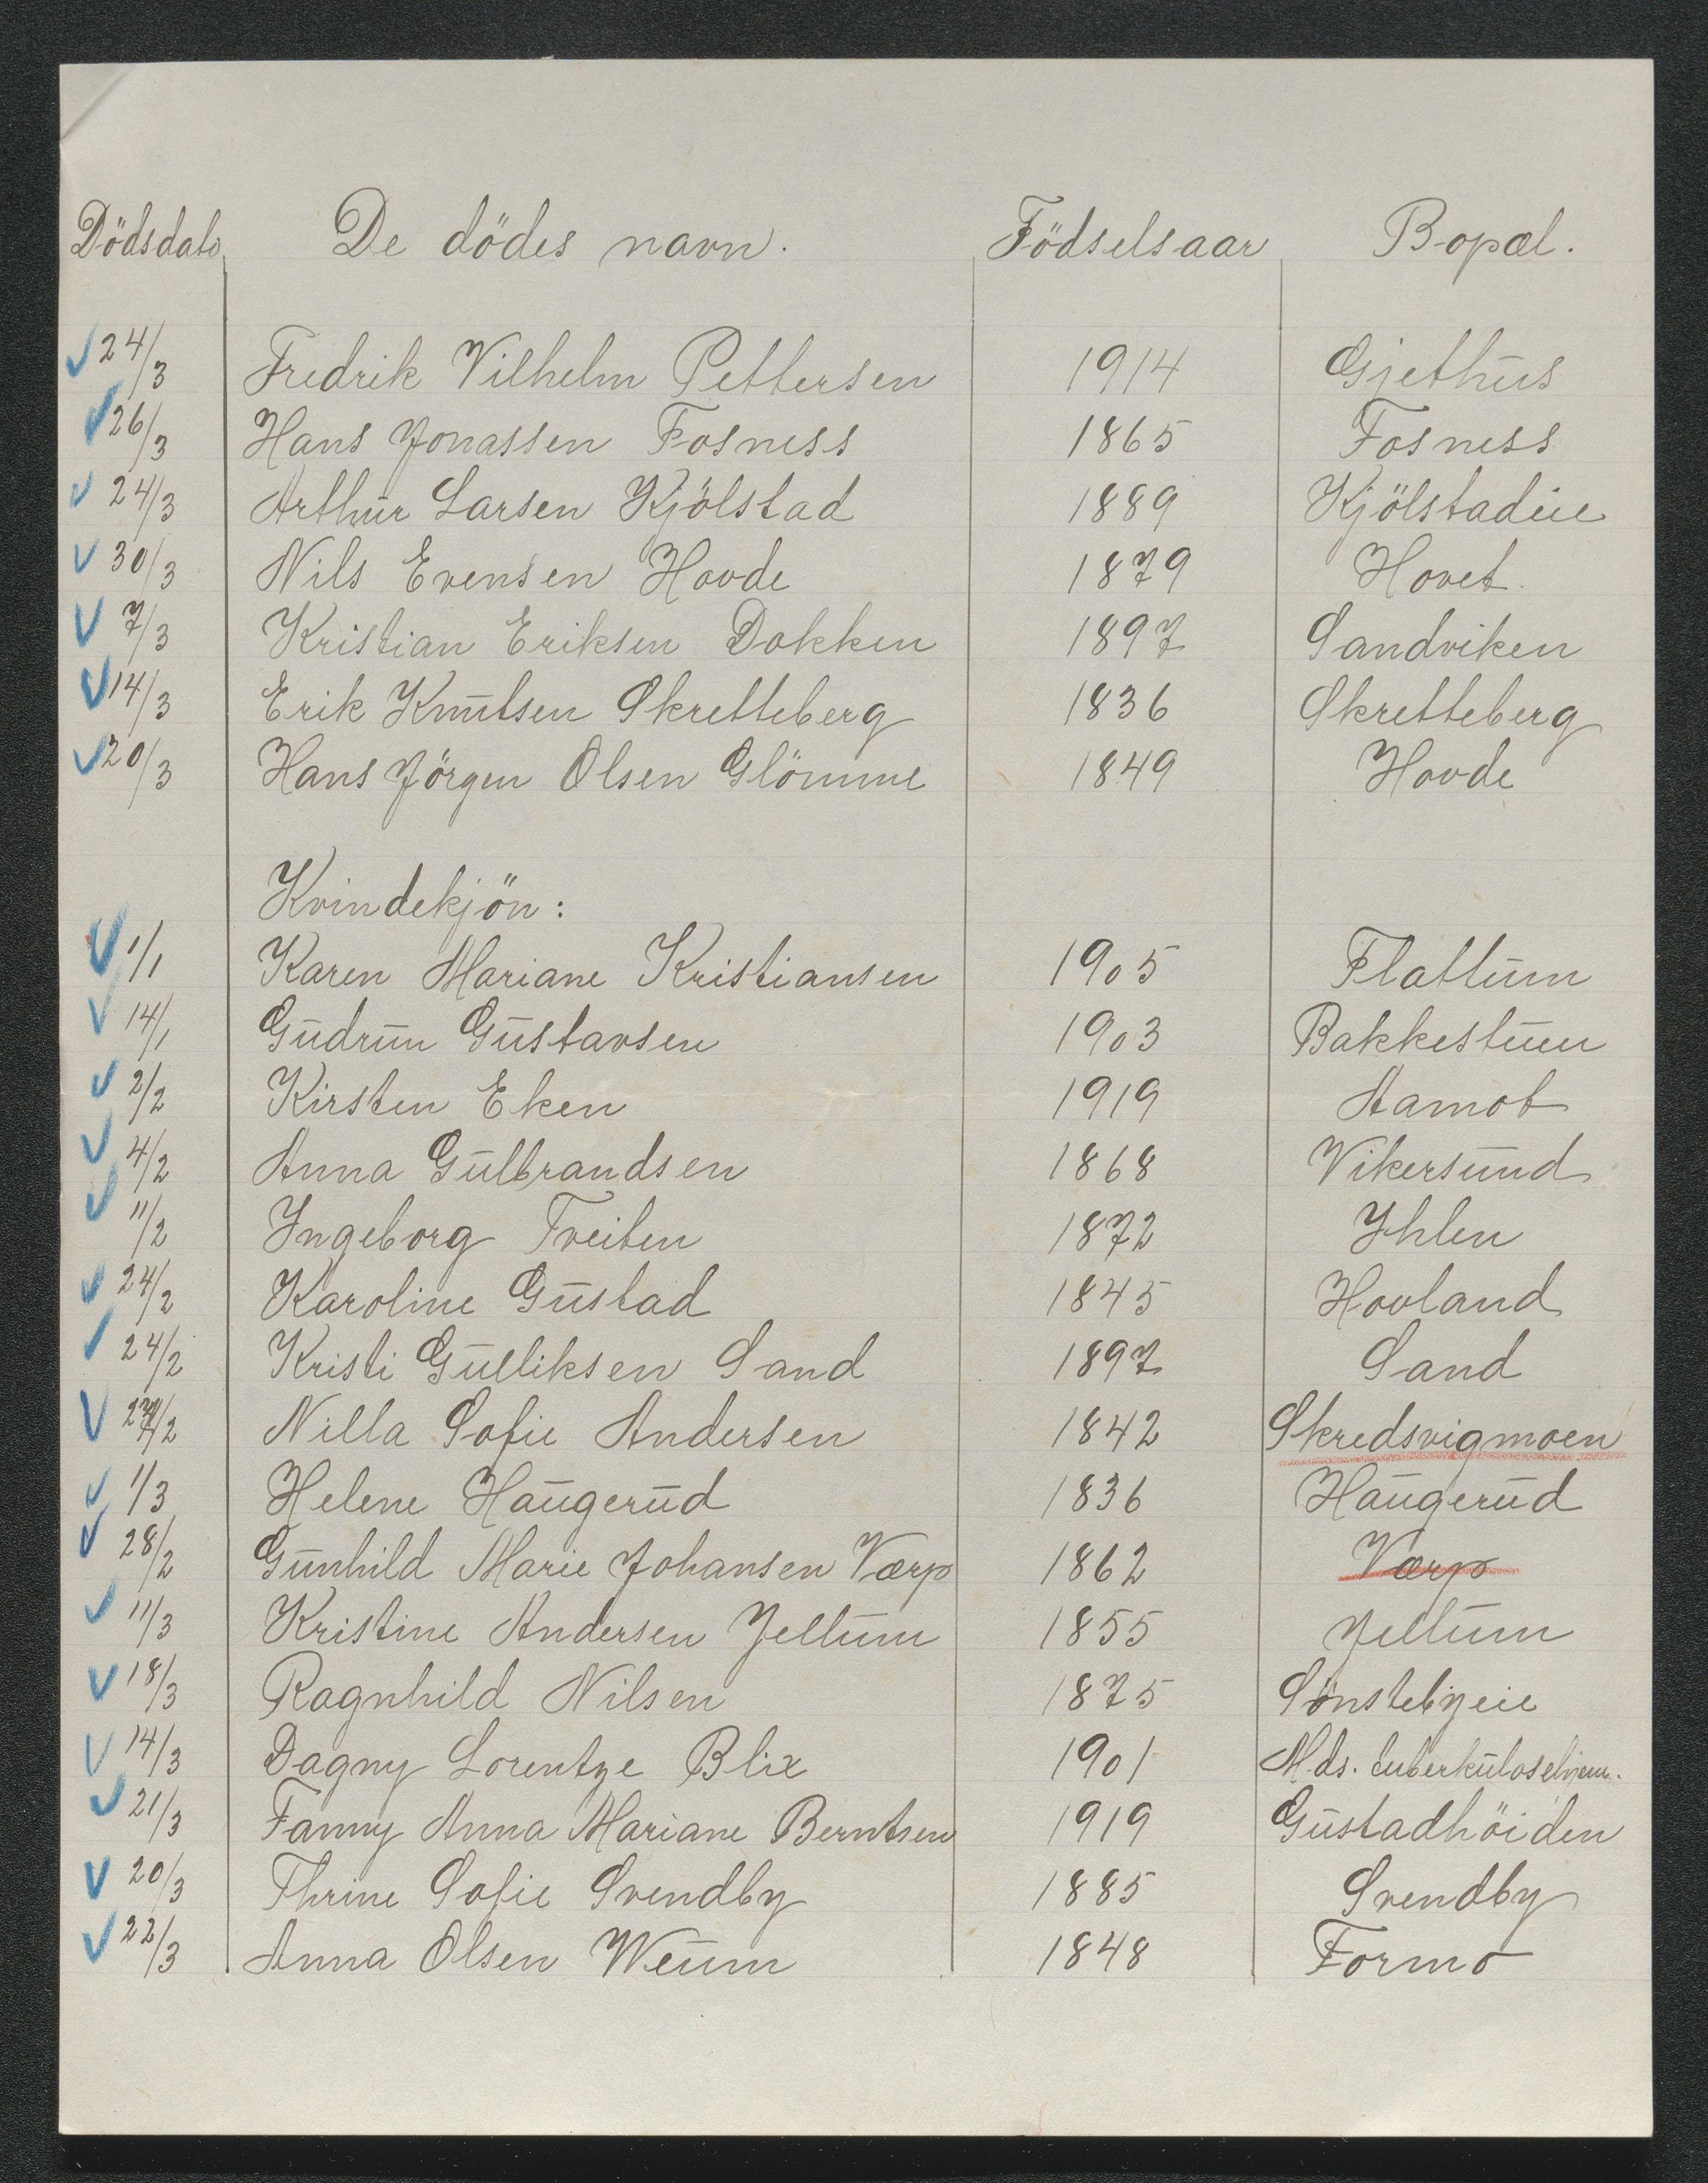 Dödsdato De dödes navn. Födselsaar Bopæl.
24/3 Fredrik Vilhelm Pettersen 1914 Gjethus
26/3 Hans Jonassen Fosness 1865 Fosness
24/3 Arthur Larsen Kjölstad 1889 Kjölstadeie
30/3 Nils Evensen Hovde 1879 Hovet
7/3 Kristian Eriksen Dokken 1897 Sandviken
14/3 Erik Knutsen Skretteberg 1836 Skretteberg
20/3 Hans Jörgen Olsen Glömme 1849 Hovde
Kvindekjön:
1/1 Karen Mariane Kristiansen 1905 Flattum
14/1 Gudrun Gustavsen 1903 Bakkestuen
2/2 Kirsten Eken 1919 Aamot
4/2 Anna Gulbrandsen 1868 Vikersund
11/2 Ingeborg Tveiten 1872 Ihlen
24/2 Karoline Gustad 1845 Hovland
24/2 Kristi Gulliksen Sand 1897 Sand
/2 Nilla Sofie Andersen 1842 Skredsvigmoen
1/3 Helene Haugerud 1836 Haugerud
28/2 Gunhild Marie Johansen Værp 1862 Værp
11/3 Kristine Andersen Jellum 1855 Jellum
18/3 Ragnhild Nilsen 1875 Sönstebyeie
14/3 Dagny Lorentze Blix 1901 M.ds. tuberkulosehjem.
21/3 Fanny Anna Mariane Berntsen 1919 Gustadhöiden
20/3 Thrine Sofie Svendby 1885 Svendby
22/3 Anna Olsen Weum 1848 Formo